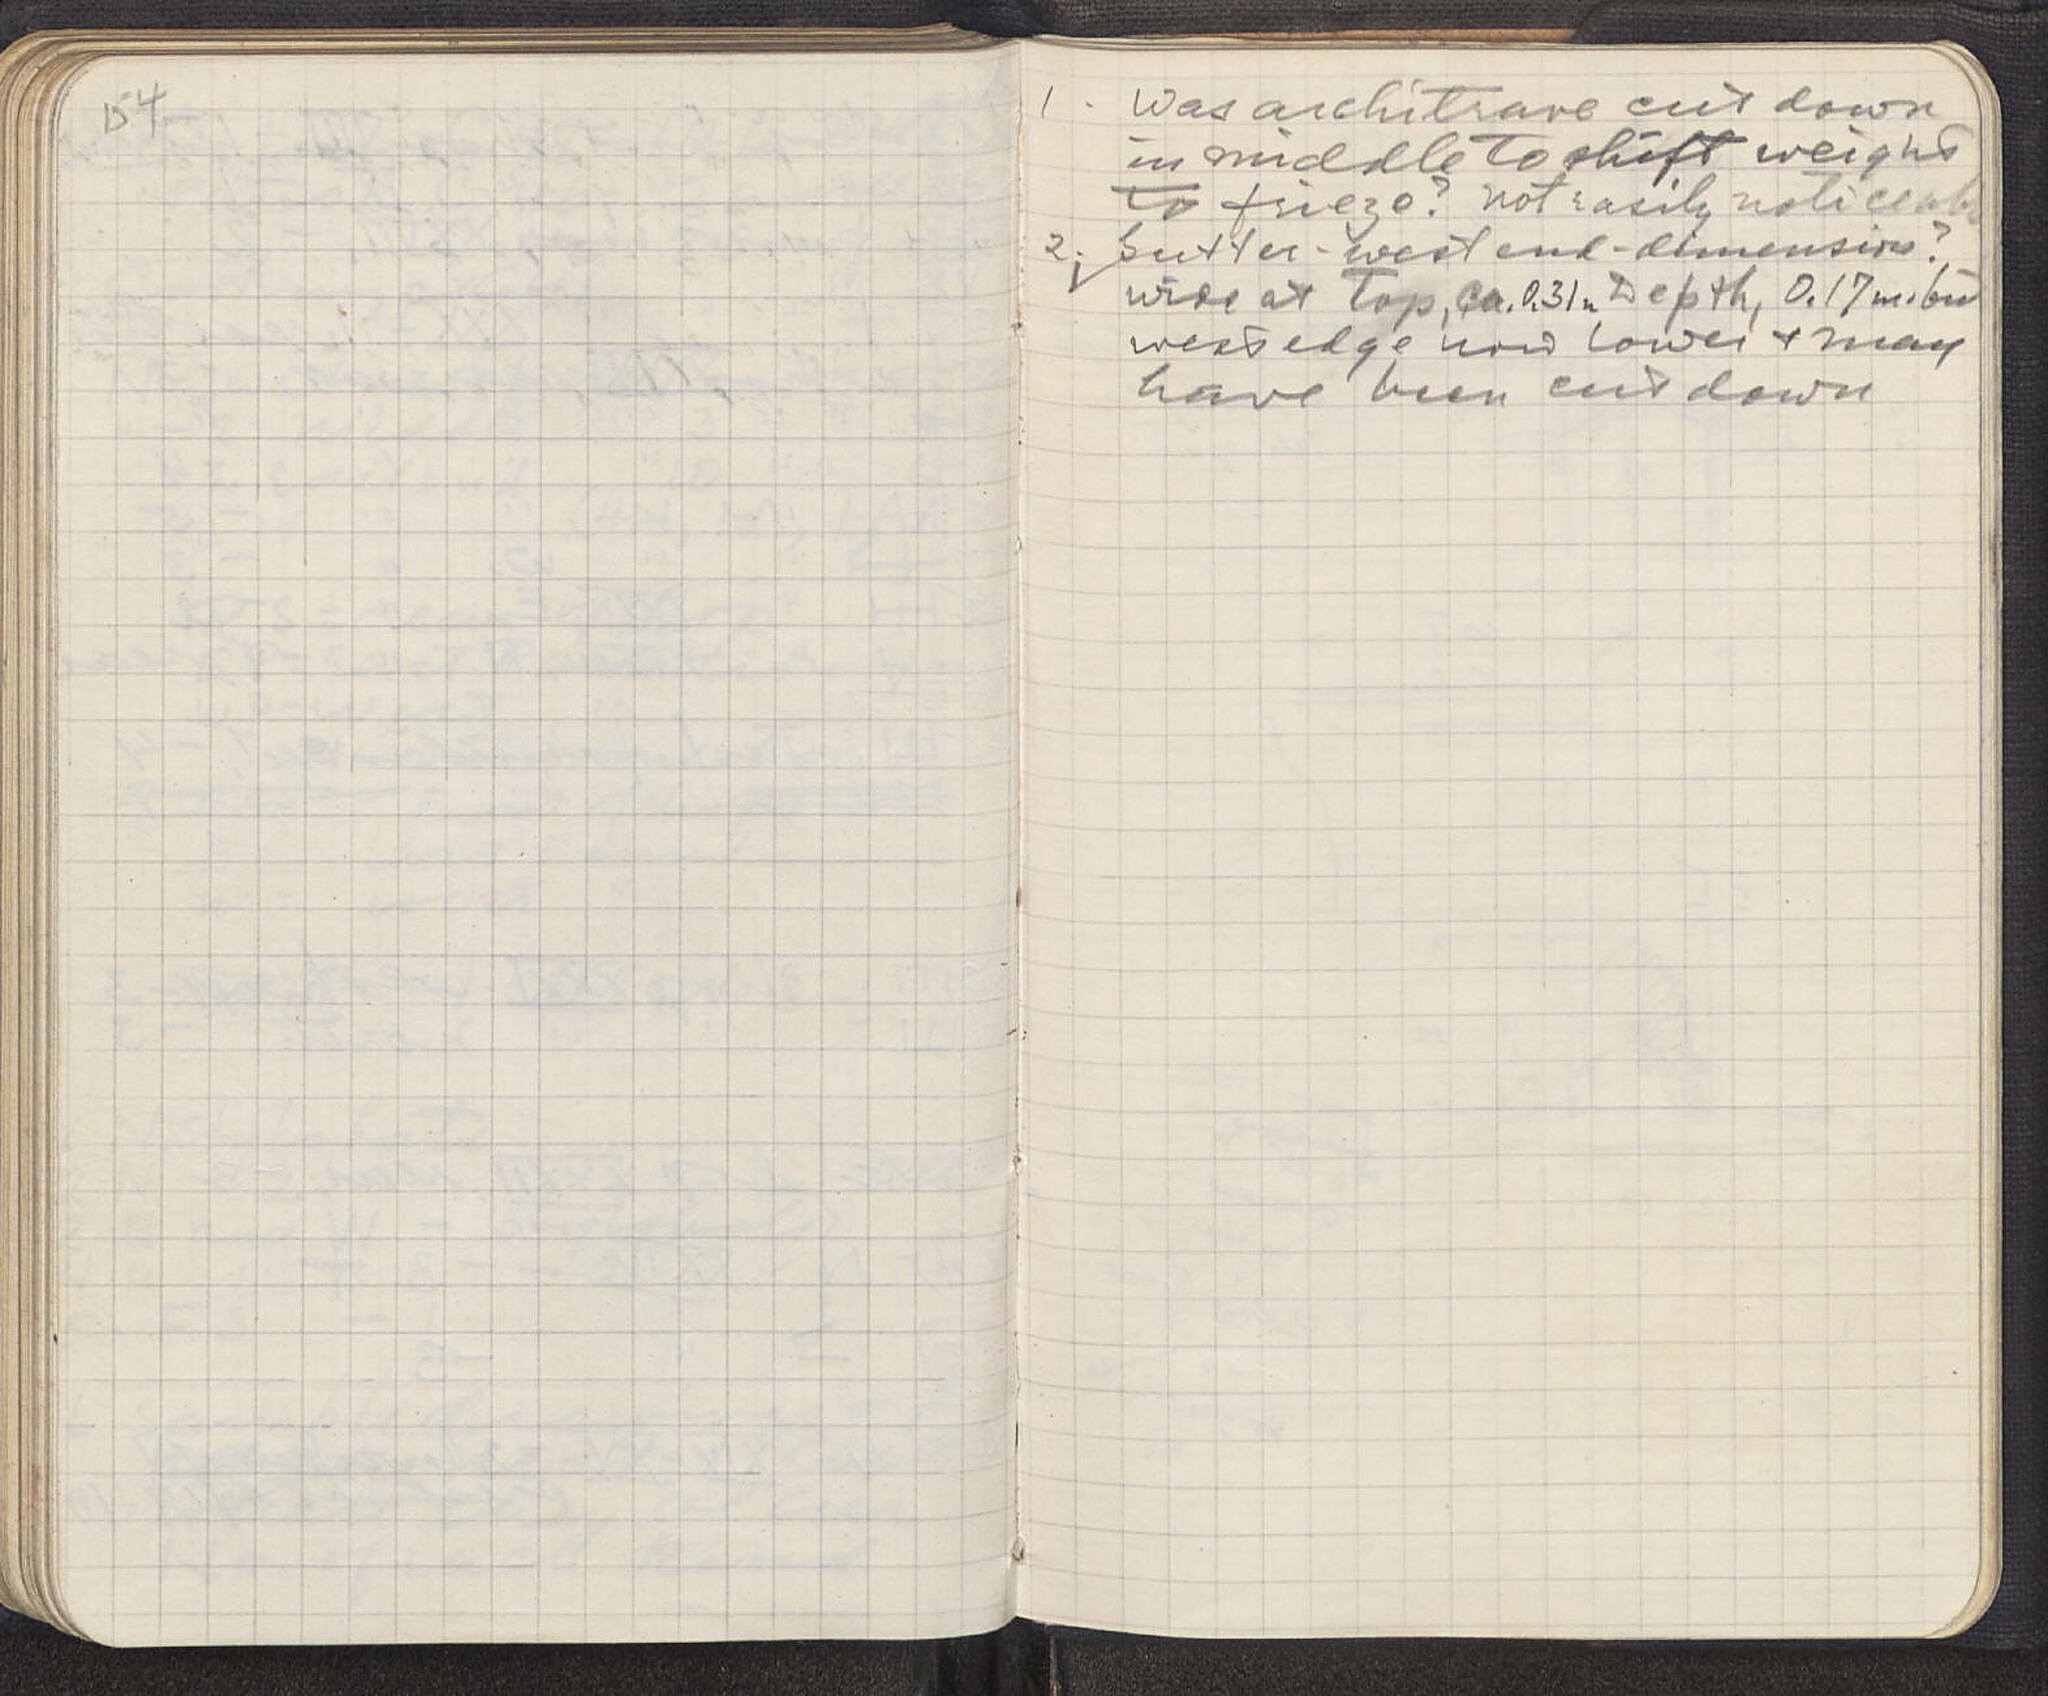 154
1. Was architrave cut down
in middle to shift weight
to frieze? not easily noticeable
2. Gutter - west end - dimensions?
wide at top, ca. 0.31m Depth, 0.17m. but
west edge now lower + may
have been cut down